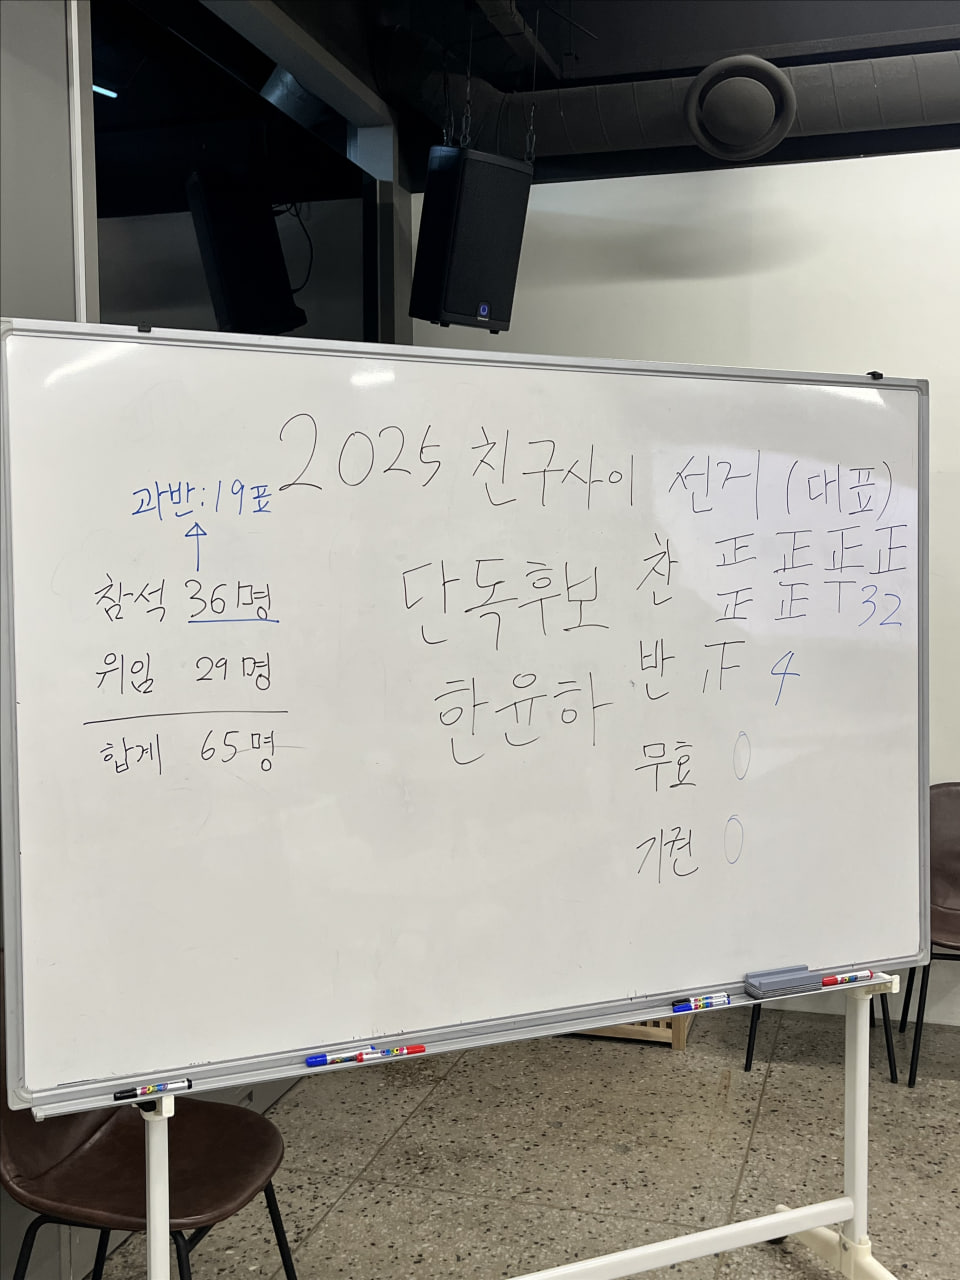 2025 친구사이 선거 (대표)
과반: 19표
참석 36명
위임 29명
합계 65명
단독후보
한윤하
찬 正 正 正 正
正 正 丅 32
반 𠄻 4
무효 0
기권 0